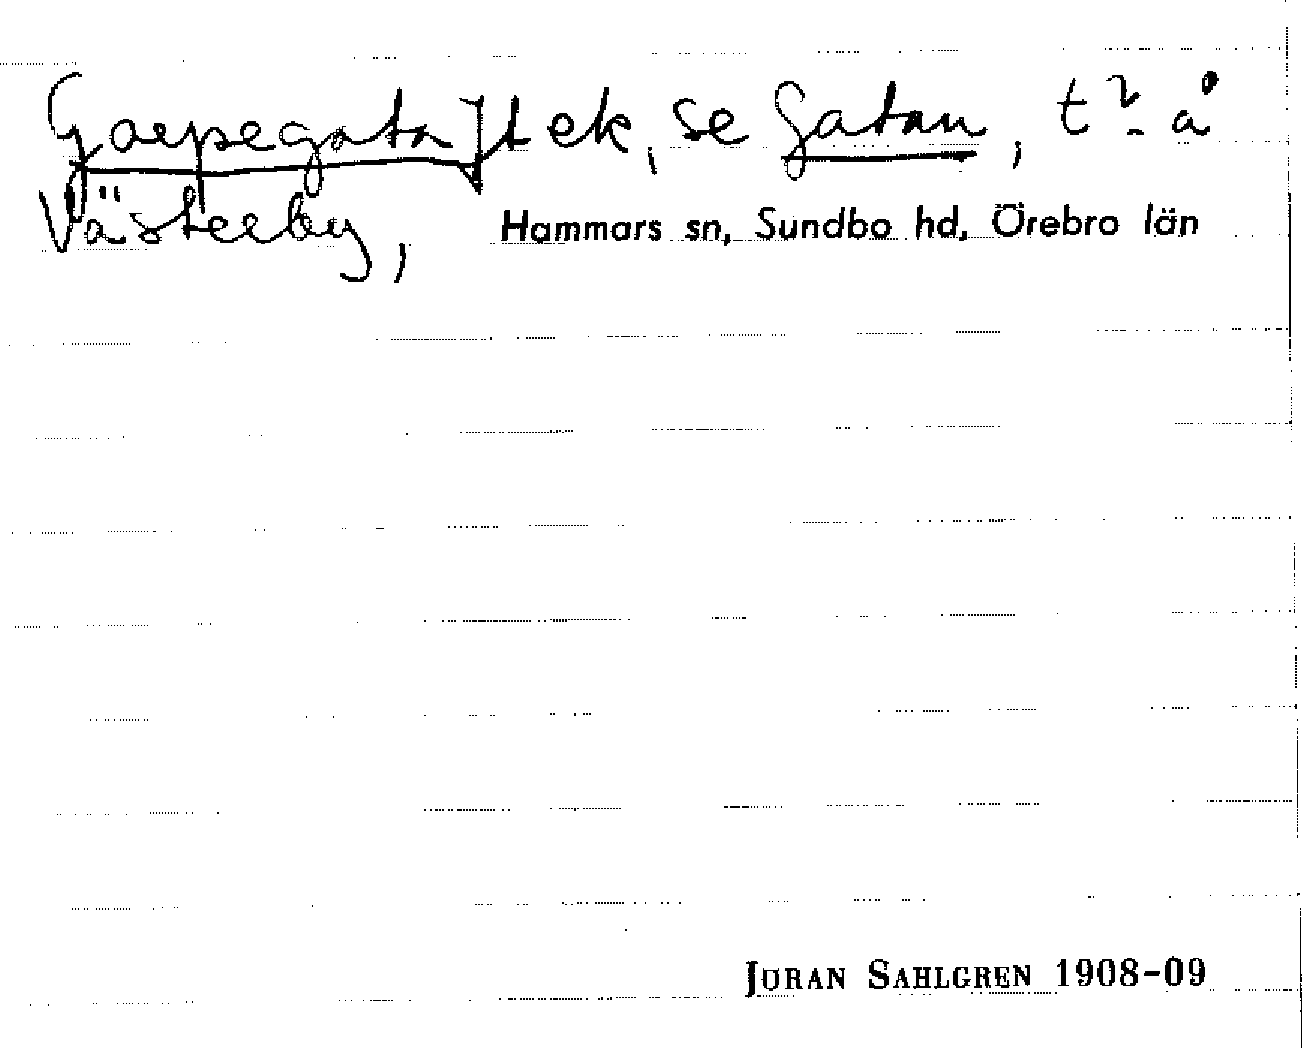 Garpegatan, t ek, se Gatan, t? å
Västerby, Hammars sn, Sundbo hd, Örebro län
JÖRAN SAHLGREN 1908-09